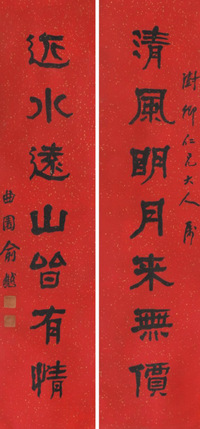 澍卿仁兄大人属
清風明月來無價
近水遠山皆有情
曲園俞樾